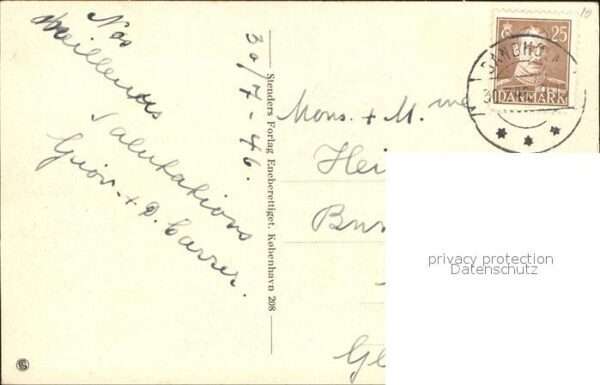 Nos
meilleures
salutations
Giov. + D. Carrer.
30/7-46.
Stenders Forlag Eneberettiget. København 208
Mons. + M. me
Hei
Bun
Gl
25
DANMARK
privacy protection
Datenschutz